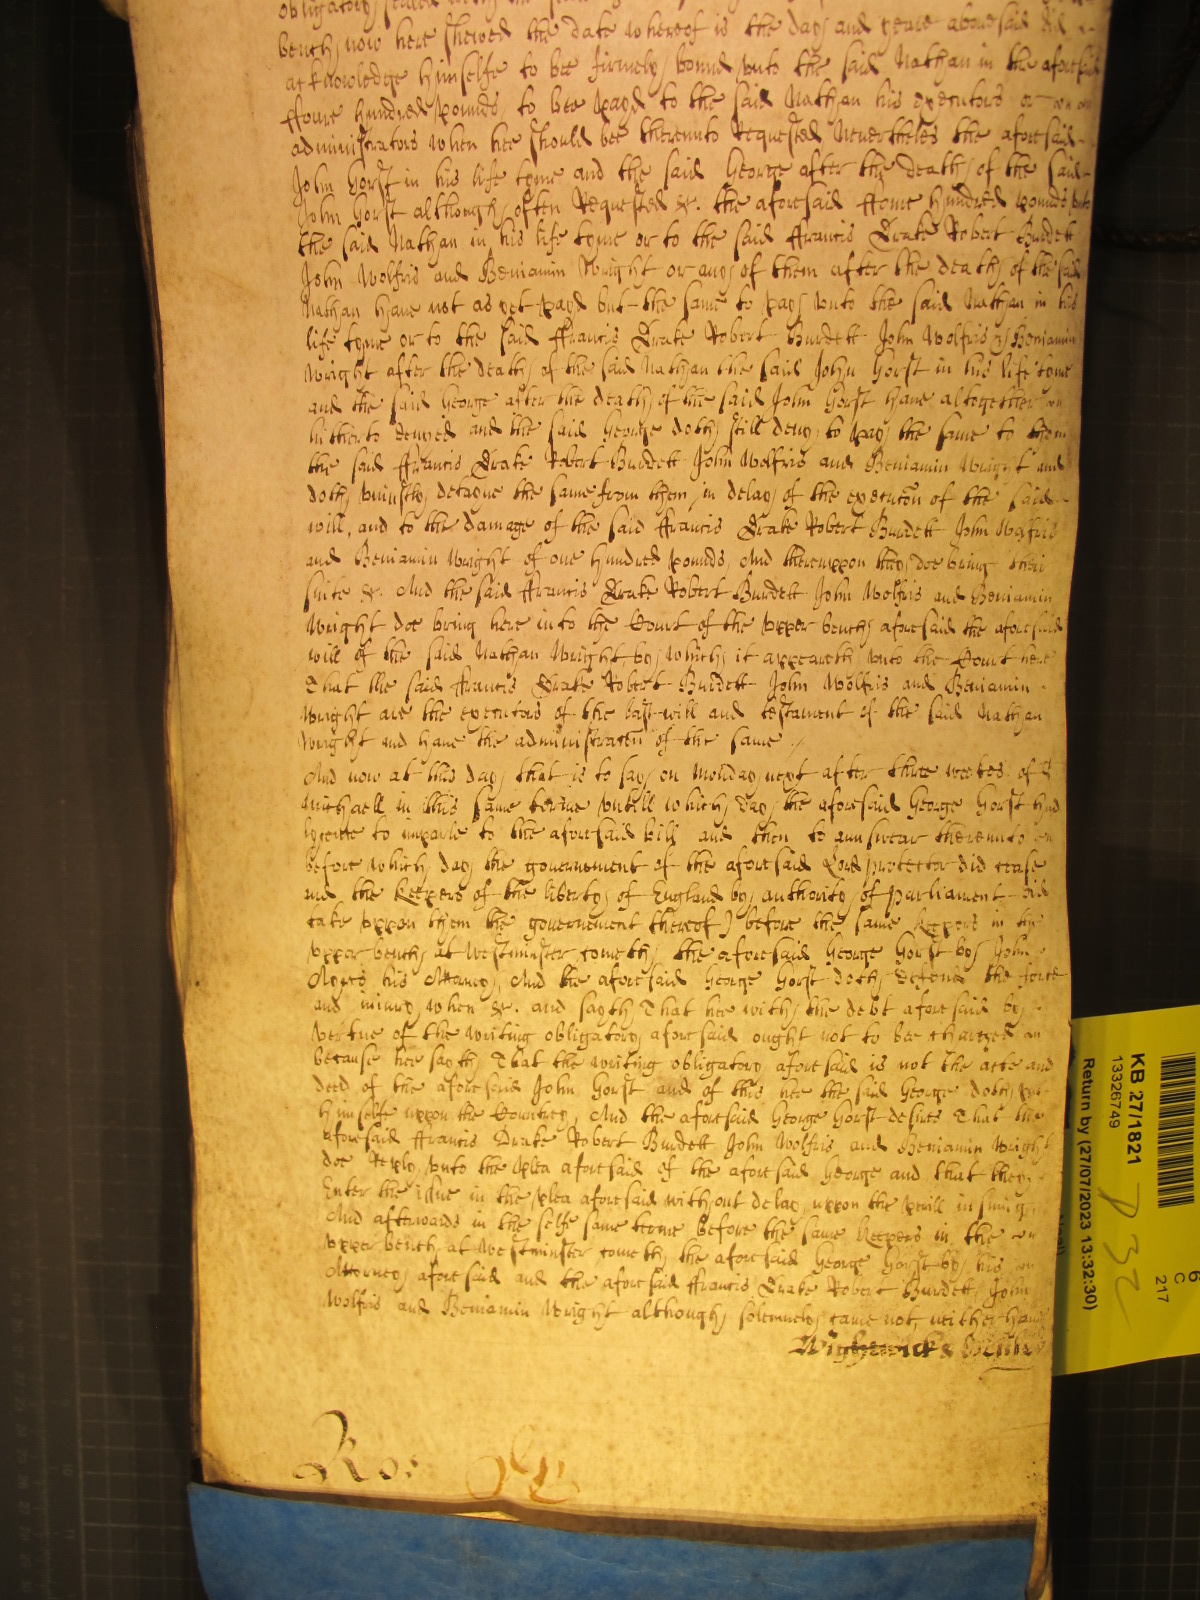 obligatory sealed with the
bench now here shewed the date whereof is the day and yeare abovesaid did
acknowledge himselfe to bee firmely bound unto the said Nathan in the aforesaid
ffoure hundred pounds to bee payd to the said Nathan his executors or
administrators when hee should bee thereunto Requested Neverthelés the aforesaid
John Gorst in his life tyme and the said George after the death of the said
John Gorst although often Requested &c. the aforesaid ffoure hundred pounds unto
the said Nathan in his life tyme or to the said ffrancis Drake Robert Burdett
John Wolfris and Beniamin Wright or any of them after the death of the said
Nathan have not as yet payd but the same to pay unto the said Nathan in his
life tyme or to the said ffrancis Drake Robert Burdett John Wolfris & Beniamin
Wright after the death of the said Nathan the said John Gorst in his life tyme
and the said George after the death of the said John Gorst have altogether
hitherto denyed and the said George doth still deny to pay the same to them
the said ffrancis Drake Robert Burdett John Wolfris and Beniamin Wright and
doth uniustly detayne the same from them in delay of the executōn of the said
will, and to the damage of the said ffrancis Drake Robert Burdett John Wolfris
and Beniamin Wright of one hundred pounds, And thereuppon they doe bring their
suite &c. And the said ffrancis Drake Robert Burdett John Wolfris and Beniamin
Wright doe bring here into the Court of the upper bench aforesaid the aforesaid
will of the said Nathan Wright by which it appeareth unto the Court here
That the said ffrancis Drake Robert Burdett John Wolfris and Beniamin
Wright are the executors of the last will and testament of the said Nathan
Wright and have the administratōn of the same
And now at this day that is to say on Monday next after three weekes of St
Michaell in this same terme untill which day the aforesaid George Gorst had
lycence to imparle to the aforesaid bill and then to answear thereunto
before which day the governement of the aforesaid Lord protector did cease
and the Keepers of the liberty of England by authority of parliament did
take uppon them the governement thereof) before the same keepers in the
upper bench at Westminster cometh the aforesaid George Gorst by John
Myers his Attorney, And the aforesaid George Gorst doth defend the force
and iniury when &c. and sayth That hee with the debt aforesaid by
vertue of the writing obligatory aforesaid ought not to bee charged
because hee sayth That the writing obligatory aforesaid is not the acte and
deed of the aforesaid John Gorst and of this hee the said George doth put
himselfe uppon the Country, And the aforesaid George Gorst desires That the
aforesaid ffrancis Drake Robert Burdett John Wolfris and Beniamin Wright
doe Reply unto the plea aforesaid of the aforesaid George and that they
Enter the issue in the plea aforesaid without delay uppon the perill insuing
And afterwards in the selfe same terme before the same keepers in the
upper bench at Westminster cometh the aforesaid George Gorst by his
Attorney aforesaid and the aforesaid ffrancis Drake Robert Burdett John
Wolfris and Beniamin Wright although solemnely came not neither have
Ro:
KB 27/1821
13326749
Return by (27/07/2023 13:32:30)
6
C
217
D 32